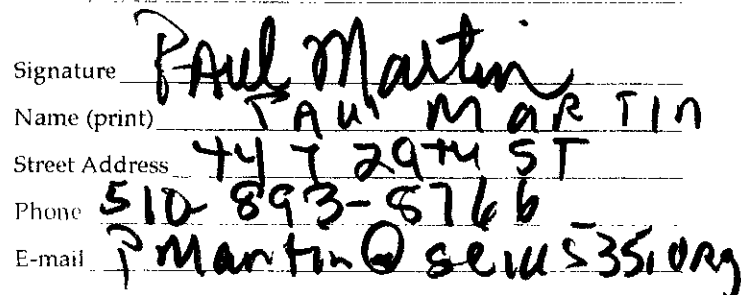 Signature Paul Martin
Name (print) PAUl MaRTIn
Street Address 447 29TH ST
Phone 510-893-8766
E-mail PMartin@seiu535.org